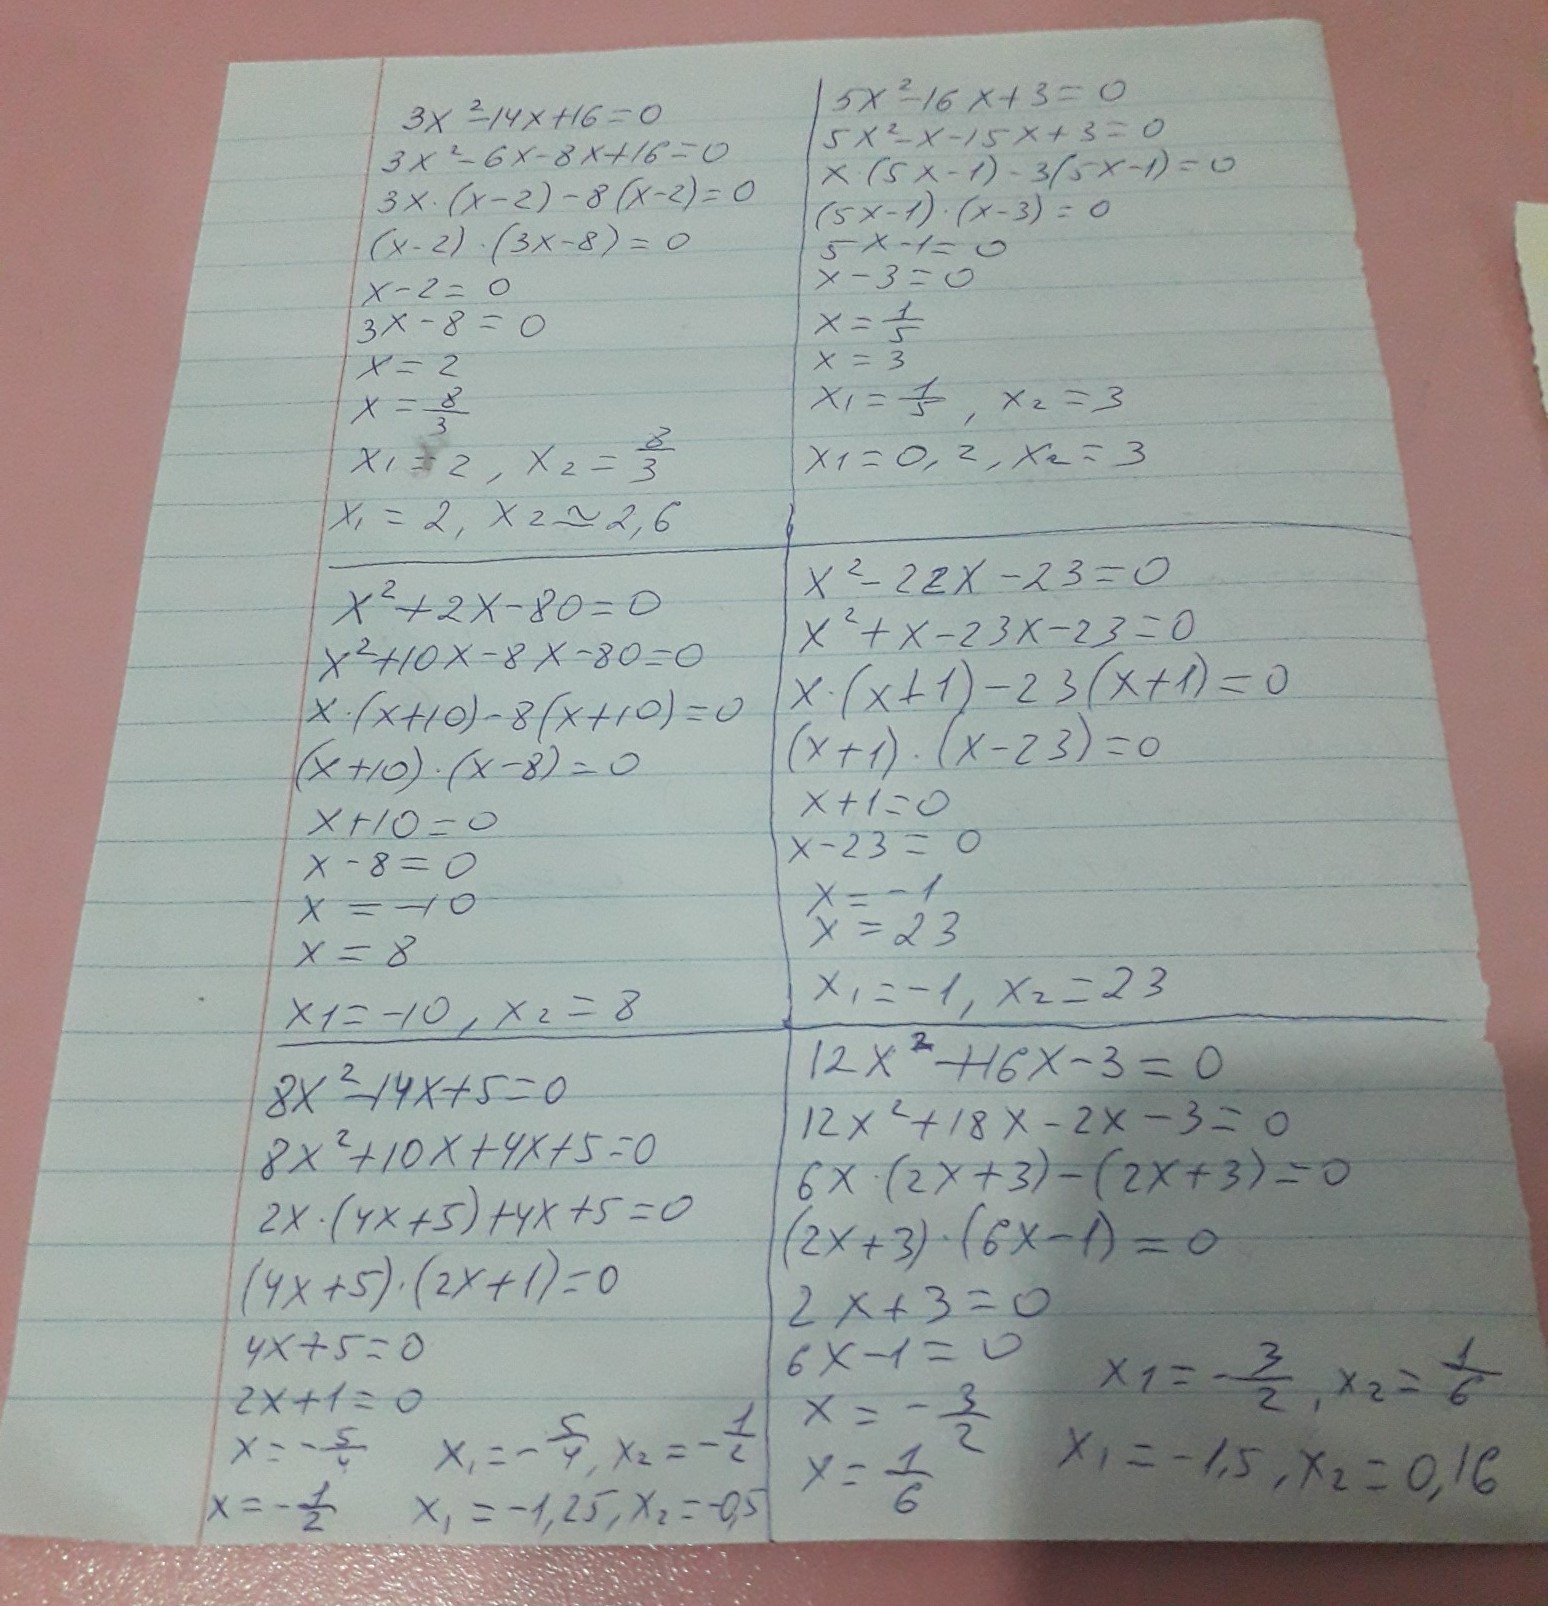 3x²-14x+16=0
3x²-6x-8x+16=0
3x·(x-2)-8(x-2)=0
(x-2)·(3x-8)=0
x-2=0
3x-8=0
x=2
x=8/3
x₁=2, x₂=8/3
x₁=2, x₂≃2,6
5x²-16x+3=0
5x²-x-15x+3=0
x·(5x-1)-3(5x-1)=0
(5x-1)·(x-3)=0
5x-1=0
x-3=0
x=1/5
x=3
x₁=1/5, x₂=3
x₁=0,2, x₂=3
x²+2x-80=0
x²+10x-8x-80=0
x·(x+10)-8(x+10)=0
(x+10)·(x-8)=0
x+10=0
x-8=0
x=-10
x=8
x₁=-10, x₂=8
x²-22x-23=0
x²+x-23x-23=0
x·(x+1)-23(x+1)=0
(x+1)·(x-23)=0
x+1=0
x-23=0
x=-1
x=23
x₁=-1, x₂=23
8x²-14x+5=0
8x²+10x+4x+5=0
2x·(4x+5)+4x+5=0
(4x+5)·(2x+1)=0
4x+5=0
2x+1=0
x=-5/4
x=-1/2
x₁=-5/4, x₂=-1/2
x₁=-1,25, x₂=-0,5
12x²+16x-3=0
12x²+18x-2x-3=0
6x·(2x+3)-(2x+3)=0
(2x+3)·(6x-1)=0
2x+3=0
6x-1=0
x=-3/2
x=1/6
x₁=-3/2, x₂=1/6
x₁=-1,5, x₂=0,16